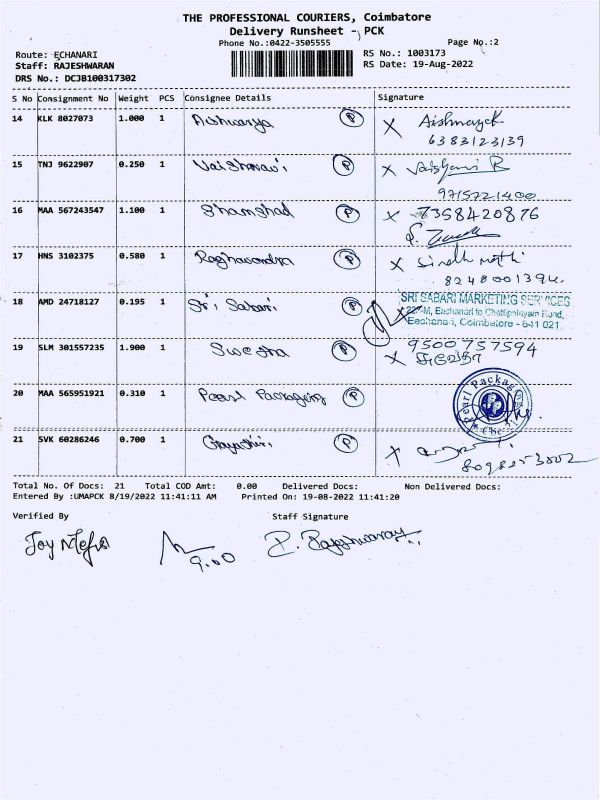 THE PROFESSIONAL COURIERS, Coimbatore
Delivery Runsheet - PCK
Phone No.:0422-3505555
Page No.:2
Route: ECHANARI
RS No.: 1003173
Staff: RAJESHWARAN
RS Date: 19-Aug-2022
DRS No.: DCJB100317302
S No Consignment No Weight PCS Consignee Details Signature
14 KLK 8027073 1.000 1 Aishwarya P X
6383123139
15 TNJ 9622907 0.250 1 Vaishnavi P X
9715721400
16 MAA 567243547 1.100 1 Shamshad P X 7358420876
17 HNS 3102375 0.580 1 Raghavendra P X
18 AMD 24718127 0.195 1 Sri Sabari P
SRI SABARI MARKETING SERVICES
Eachanari, Coimbatore - 641 021
19 SLM 301557235 1.900 1 Swetha P 9500757594
X சுவேதா
20 MAA 565951921 0.310 1 Pearl Packaging P
Pearl Packaging
21 SVK 60286246 0.700 1 Gayathiri P X
Total No. Of Docs: 21 Total COD Amt: 0.00 Delivered Docs: Non Delivered Docs:
Entered By :UMAPCK 8/19/2022 11:41:11 AM Printed On: 19-08-2022 11:41:20
Verified By Staff Signature
9.00 P. Rajeshwaran